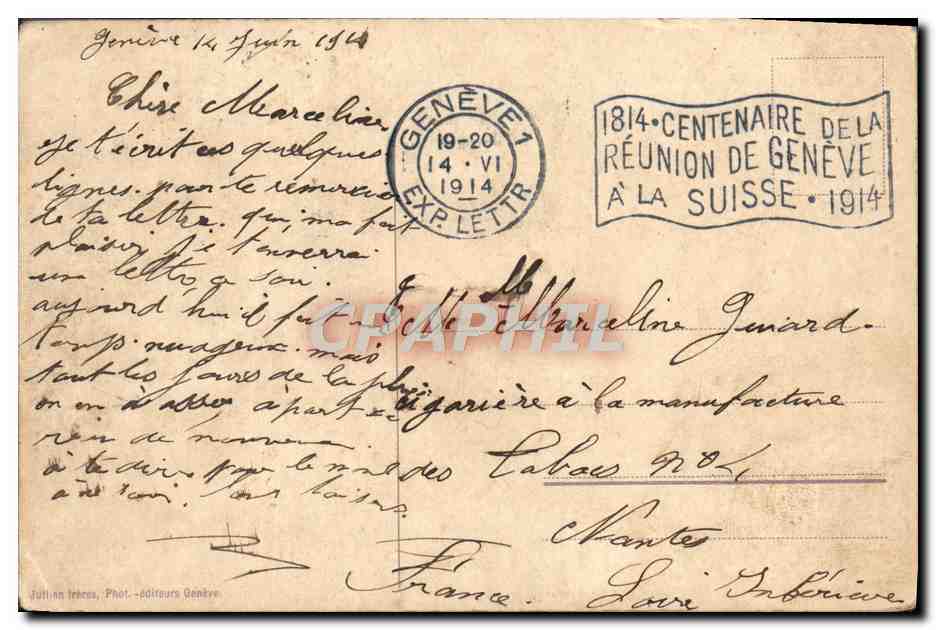 Genève 14 Juin 1914
Chère Marceline
je t'écrit ces quelques
lignes pour te remercier
de ta lettre qui ma fait
plaisir je t'enverrai
un lettre a soir
aujourd'hui il fait un
temps nuageux mais
tout les jours de la plui
on en a assez, à part ça
rien de nouveau
à te dire pour le moment
GENÈVE 1
19-20
14 · VI
1914
EXP. LETTR
1814 · CENTENAIRE DE LA
RÉUNION DE GENÈVE
À LA SUISSE · 1914
CPAPHIL
Melle Marceline Guiard
cigarière à la manufacture
des Tabacs
Nantes
Loire Inférieure
France
Jullien frères, Phot.-éditeurs Genève.